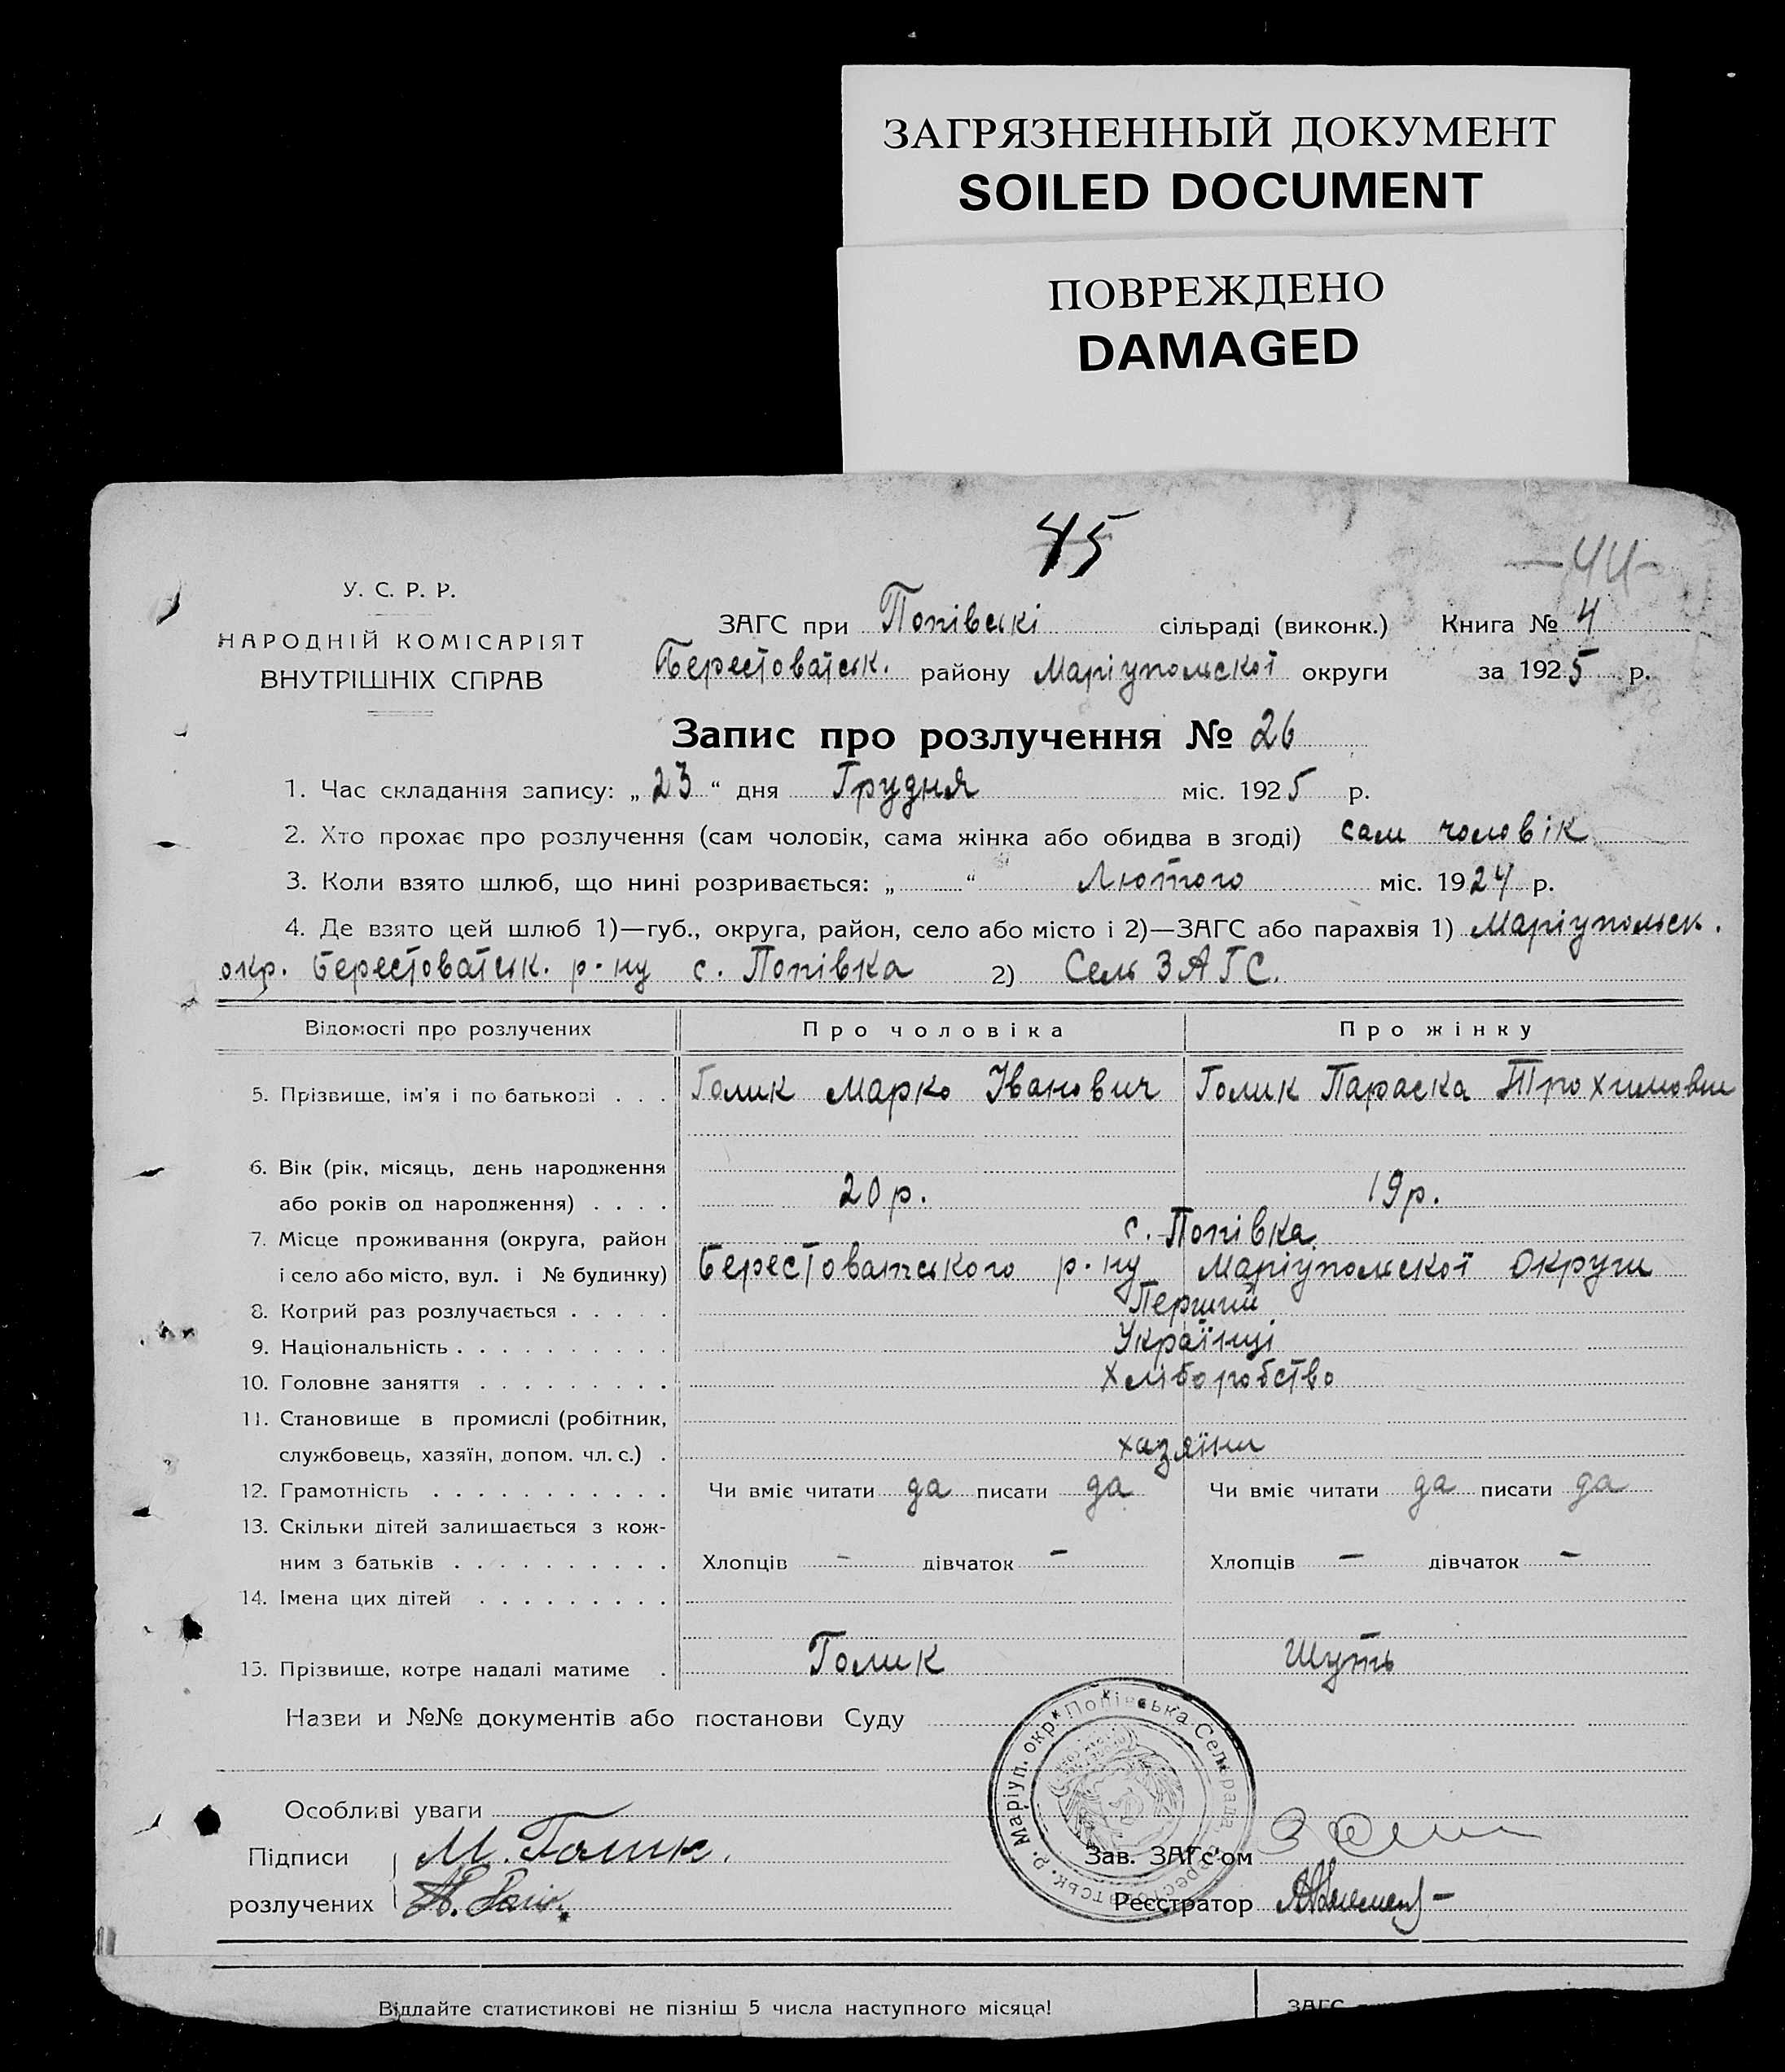 ЗАГРЯЗНЕННЫЙ ДОКУМЕНТ
SOILED DOCUMENT
ПОВРЕЖДЕНО
DAMAGED
45
—44—
У. С. Р. Р.
НАРОДНІЙ КОМІСАРІЯТ
ВНУТРІШНІХ СПРАВ
ЗАГС при Попівські сільраді (виконк.) Книга № 4
Берестоватськ. району Маріупольскої округи за 1925 р.
Запис про розлучення № 26
1. Час складання запису: „23“ дня Грудня міс. 1925 р.
2. Хто прохає про розлучення (сам чоловік, сама жінка або обидва в згоді) сам чоловік
3. Коли взято шлюб, що нині розривається: „ “ Лютого міс. 1924 р.
4. Де взято цей шлюб 1)—губ., округа, район, село або місто і 2)—ЗАГС або парахвія 1) Маріупольськ.
окр. Берестоватськ. р-ну с. Попівка 2) Сель ЗАГС.
Відомості про розлучених Про чоловіка Про жінку
5. Прізвище, ім'я і по батькові . . . Голик Марко Іванович Голик Параска Трохимовни
6. Вік (рік, місяць, день народження
або років од народження) . . . . 20 р. 19 р.
7. Місце проживання (округа, район с. Попівка
і село або місто, вул. і № будинку) Берестоватського р-ну Маріупольскої Округи
8. Котрий раз розлучається . . . . . Перший
9. Національність . . . . . . . . . . Українці
10. Головне заняття . . . . . . . . . Хліборобство
11. Становище в промислі (робітник,
службовець, хазяїн, допом. чл. с.) . хазяїни
12. Грамотність . . . . . . . . . . . Чи вміє читати да писати да Чи вміє читати да писати да
13. Скільки дітей залишається з кож-
ним з батьків . . . . . . . . . . Хлопців — дівчаток — Хлопців — дівчаток —
14. Імена цих дітей . . . . . . . . .
15. Прізвище, котре надалі матиме . Голик Шуть
Назви и №№ документів або постанови Суду
Маріуп. окр. Попівська Сельрада
Особливі уваги
Підписи М. Голик.
Зав. ЗАГс'ом
розлучених
Реєстратор
Віддайте статистикові не пізніш 5 числа наступного місяця!
ЗАГС